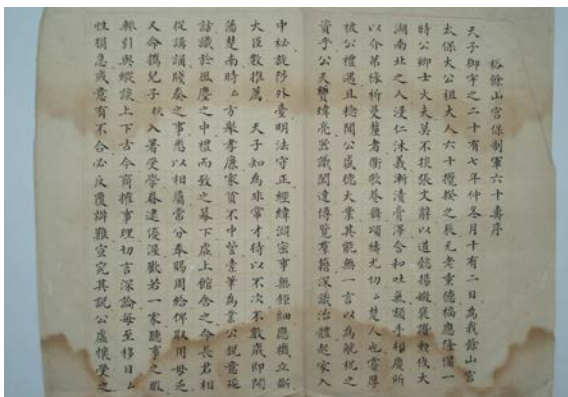 裕餘山宮保制軍六十壽序
天子御宇之二十有七年仲冬月十有二日為我餘山宮
太保大公祖大人六十攬揆之辰元老重德福應隆備一
時公卿士大夫莫不摛張文辭以道懿揚徽褒讚敕伐大
湖南北之人浸仁沐義漸漬膏澤合和吐氣頞手相慶所
以介弟祿祈曼釐者衢歌巷舞頌禱尤切々楚人也嘗厚
被公禮遇且稔聞公盛德大業其能無一言以為觥祝之
資乎公天寶瑋亮器識閎達博覽群籍深識治體起家入
中祕敭陟外臺明法守正經緯淵密事無鉅細應機立斷
大臣數推薦 天子知為非常才待以不次不數歲即開
藩楚南時々方舉孝廉家貧不中訾素筆為業公銳意延
訪識於風塵之中禮而致之幕下處上館舍之令長君相
從講誦賤奏之事悉以相屬常分奉賜周給俾取用毋乏
又命攜兒子 入署受學眷逮優渥歡若一家聽事之暇
輒引與縱談上下古今商榷事理切言深論每至移日々
性狷急或意有不合必反覆辯難宣究其說公虛懷受之